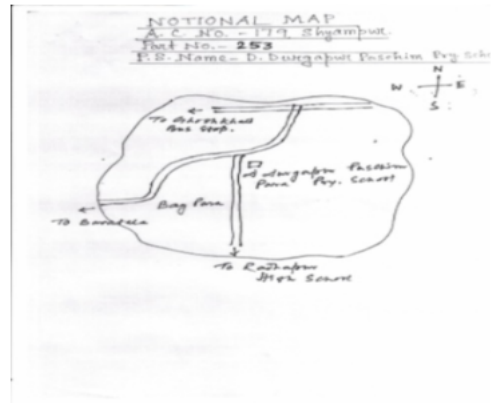 NOTIONAL MAP
A.C. No. - 179 Shyampur.
Part No. - 253
P.S. Name - D. Durgapur Paschim Pry. Scho
N
W E
S
To
Bus Stop.
Durgapur Paschim
Para Pry. School
Bag Para
To Baratala
To Radhapur
High School